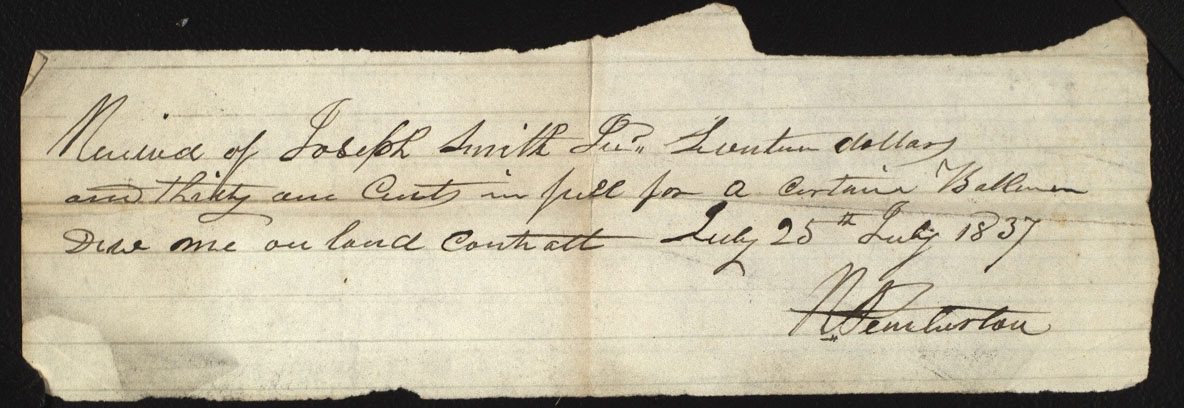 Received of Joseph Smith Jun. Seventeen dollars
and thirty one Cents in full for a certain Ballance
Due me on land contract July 25th July 1837
N Pemberton